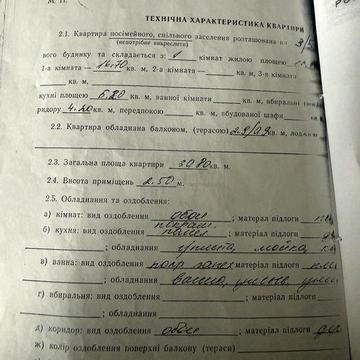 М. П.
ТЕХНІЧНА ХАРАКТЕРИСТИКА КВАРТИРИ
2.1. Квартира посімейного, спільного заселення розташована на 3/5
(непотрібне викреслити)
вого будинку та складається з 1 кімнат жилою площею
1-а кімната 16.70 кв. м, 2-а кімната кв. м, 3-я кімната
кв. м,
кухні площею 6.20 кв. м, ванної кімнати кв. м, вбиральні
ридору 4.20 кв. м, передпокою кв. м, вбудованої шафи кв. м
2.2. Квартира обладнана балконом, (терасою) кв. м,
кв. м.
2.3. Загальна площа квартири кв. м.
2.4. Висота приміщень 2.50 м.
2.5. Обладнання та оздоблення:
а) кімнат: вид оздоблення обои ; матеріал підлоги
б) кухня: вид оздоблення панел ; матеріал підлоги
; обладнання плита, мойка,
в) ванна: вид оздоблення панел ; матеріал підлоги
; обладнання ванна,
г) вбиральня: вид оздоблення ; матеріал підлоги
; обладнання
д) коридор: вид оздоблення обои ; матеріал підлоги
ж) колір оздоблення поверхні балкону (тераси)